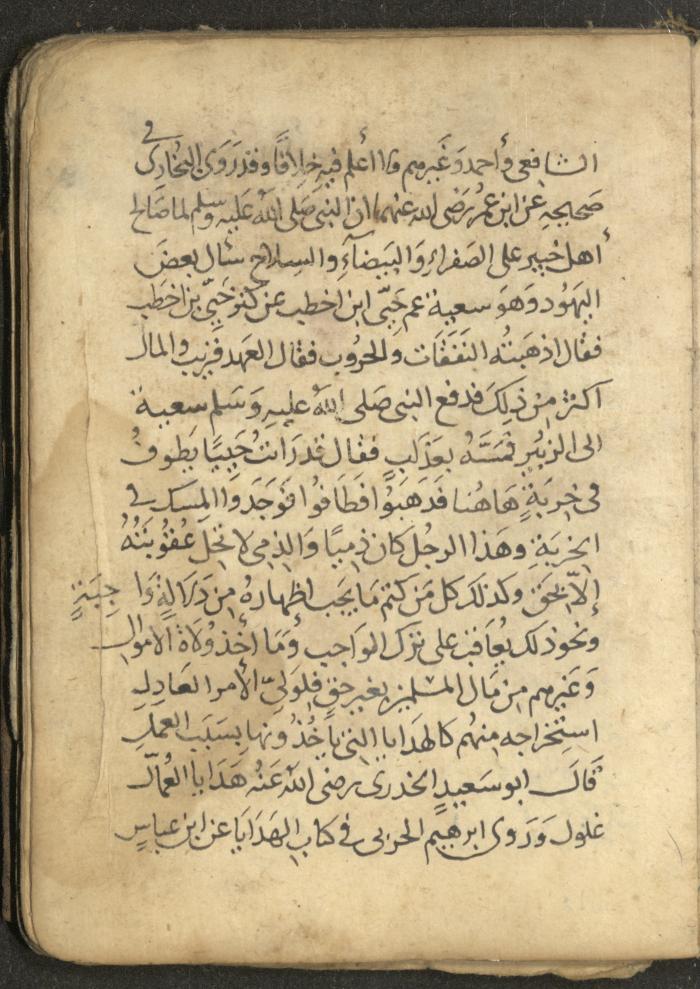 الشافعي وأحمد وغيرهم ولا أعلم فيه خلافًا وقد روى البخاري في
صحيحه عن ابن عمر رضي الله عنهما ان النبي صلى الله عليه وسلم لما صالح
أهل خيبر على الصفراء والبيضاء والسلاح سال بعض
اليهود وهو سعية عم حيي ابن اخطب عن كنز حيي بن اخطب
فقال اذهبته النفقات والحروب فقال العهد قريب والمال
اكثر من ذلك فدفع النبي صلى الله عليه وسلم سعية
الى الزبير فمسه بعذاب فقال قد رايت حييا يطوف
في خربة هاهنا فذهبوا فطافوا فوجدوا المسك في
الخربة وهذا الرجل كان ذميا والذمي لا تحل عقوبته
إلا بحق وكذلك كل من كتم ما يجب اظهاره من دلالة واجبة
ونحو ذلك يعاقب على ترك الواجب وما أخذ ولاة الاموال
وغيرهم من مال المسلمين بغير حق فلولي الأمر العادل
استخراجه منهم كالهدايا التي ياخذونها بسبب العمل
قال ابو سعيد الخدري رضي الله عنه هدايا العمال
غلول وروى ابرهيم الحربي في كتاب الهدايا عن ابن عباس